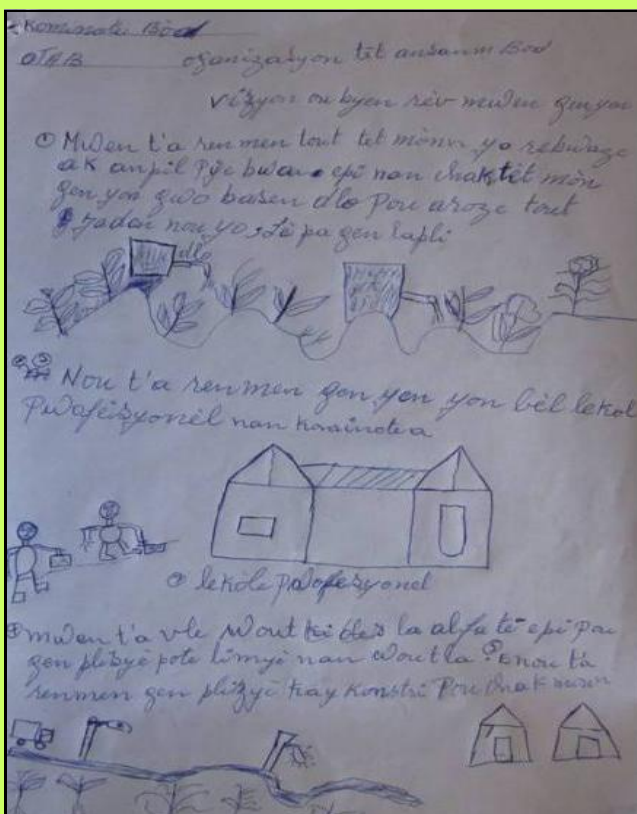 Kominote Bòd
OTAB oganizasyon tèt ansanm Bow
vizyon ou byen rèv mwen genyen
① Mwen t'a renmen tout tèt mònn yo rebwaze
ak anpil pye bwa epi nan chak tèt mòn
gen yon gwo basen dlo pou aroze tout
jaden nou yo, lè pa gen lapli
dlo
Nou t'a renmen gen yon yon bèl lekòl
Pwofèsyonèl nan kominote a
lekòle pwofesyonel
mwen t'a vle wout la alfatè epi pou
gen plizyè pote limyè nan wout la? nou t'a
renmen gen plizyè kay konstri pou chak moun